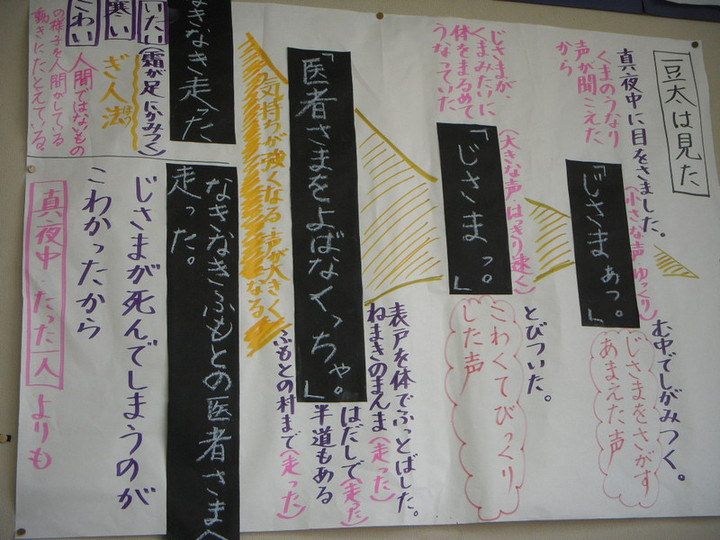 豆太は見た
真夜中に目をさました。
くまのうなり
声が聞こえた
から
「じさまぁっ。」
(小さな声 ゆっくり)
む中でしがみつく。
じさまをさがす
あまえた声
じさまが、
くまみたいに
体をまるめて
うなっていた
「じさまっ。」
(大きな声 はっきり速く)
とびついた。
こわくてびっくり
した声
「医者さまをよばなくっちゃ。」
表戸を体でふっとばした。
ねまきのまんま(走った)
はだしで(走った)
半道もある
ふもとの村まで(走った)
気持ちが強くなる 声が大きく
なる
なきなき走った
いたい(霜が足にかみつく)
寒い
こわい
ぎ人法
人間ではないもの
の様子を人間がしている
動きにたとえている。
なきなきふもとの医者さまへ
走った。
じさまが死んでしまうのが
こわかったから
真夜中・たった一人よりも